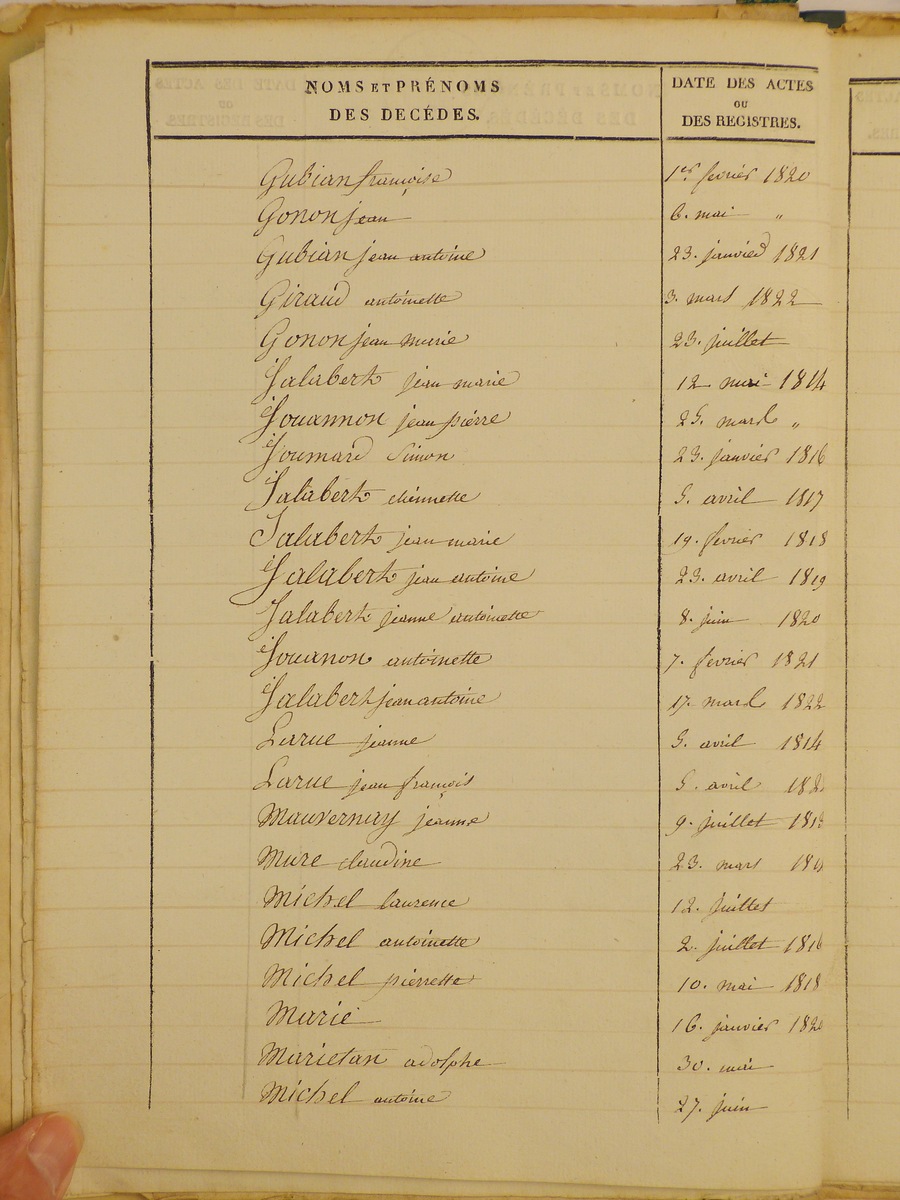 NOMS ET PRÉNOMS
DES DECÉDES.
DATE DES ACTES
OU
DES REGISTRES.
Gubian françoise 1er fevrier 1820
Gonon jean 6. mai "
Gubian jean antoine 23. janvier 1821
Giraud antoinette 3. mars 1822
Gonon jean marie 23. juillet
Jalabert jean marie 12 mai 1814
Jouannon jean pierre 25. mars "
Joumard Simon 23. janvier 1816
Jalabert etiennette 5. avril 1817
Jalabert jean marie 19. fevrier 1818
Jalabert jean antoine 23. avril 1819
Jalabert jeanne antoinette 8. juin 1820
Jouanon antoinette 7. fevrier 1821
Jalabert jean antoine 17. mars 1822
Larue jeanne 5. avril 1814
Larue jean françois 5. avril
Mauvernay jeanne 9. juillet
Mure claudine 23. mars
Michel laurence 12. juillet
Michel antoinette 2. juillet 1816
Michel pierrette 10. mai 1818
Marie 16. janvier 1820
Marietan adolphe 30. mai
Michel antoine 27. juin